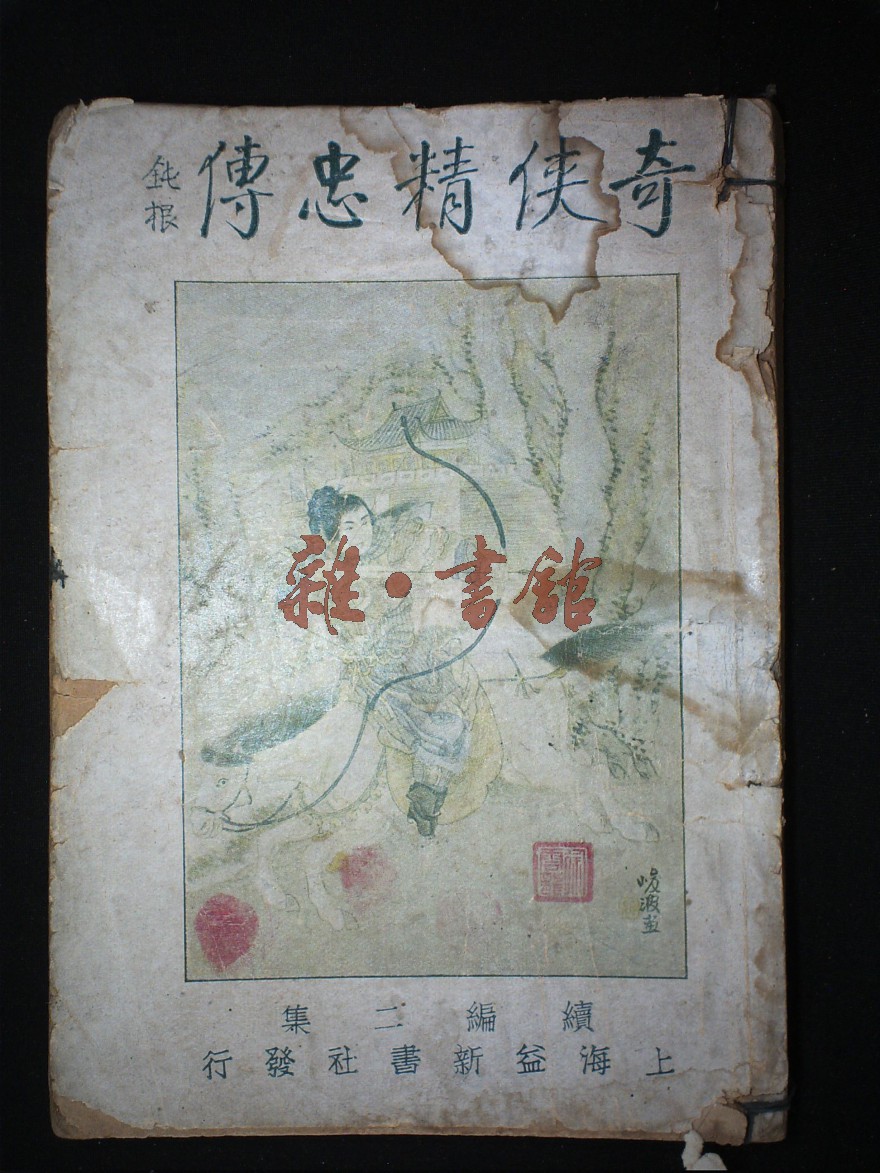 奇俠精忠傳
鈍根
雜·書館
峻波畫
續編二集
上海益新書社發行